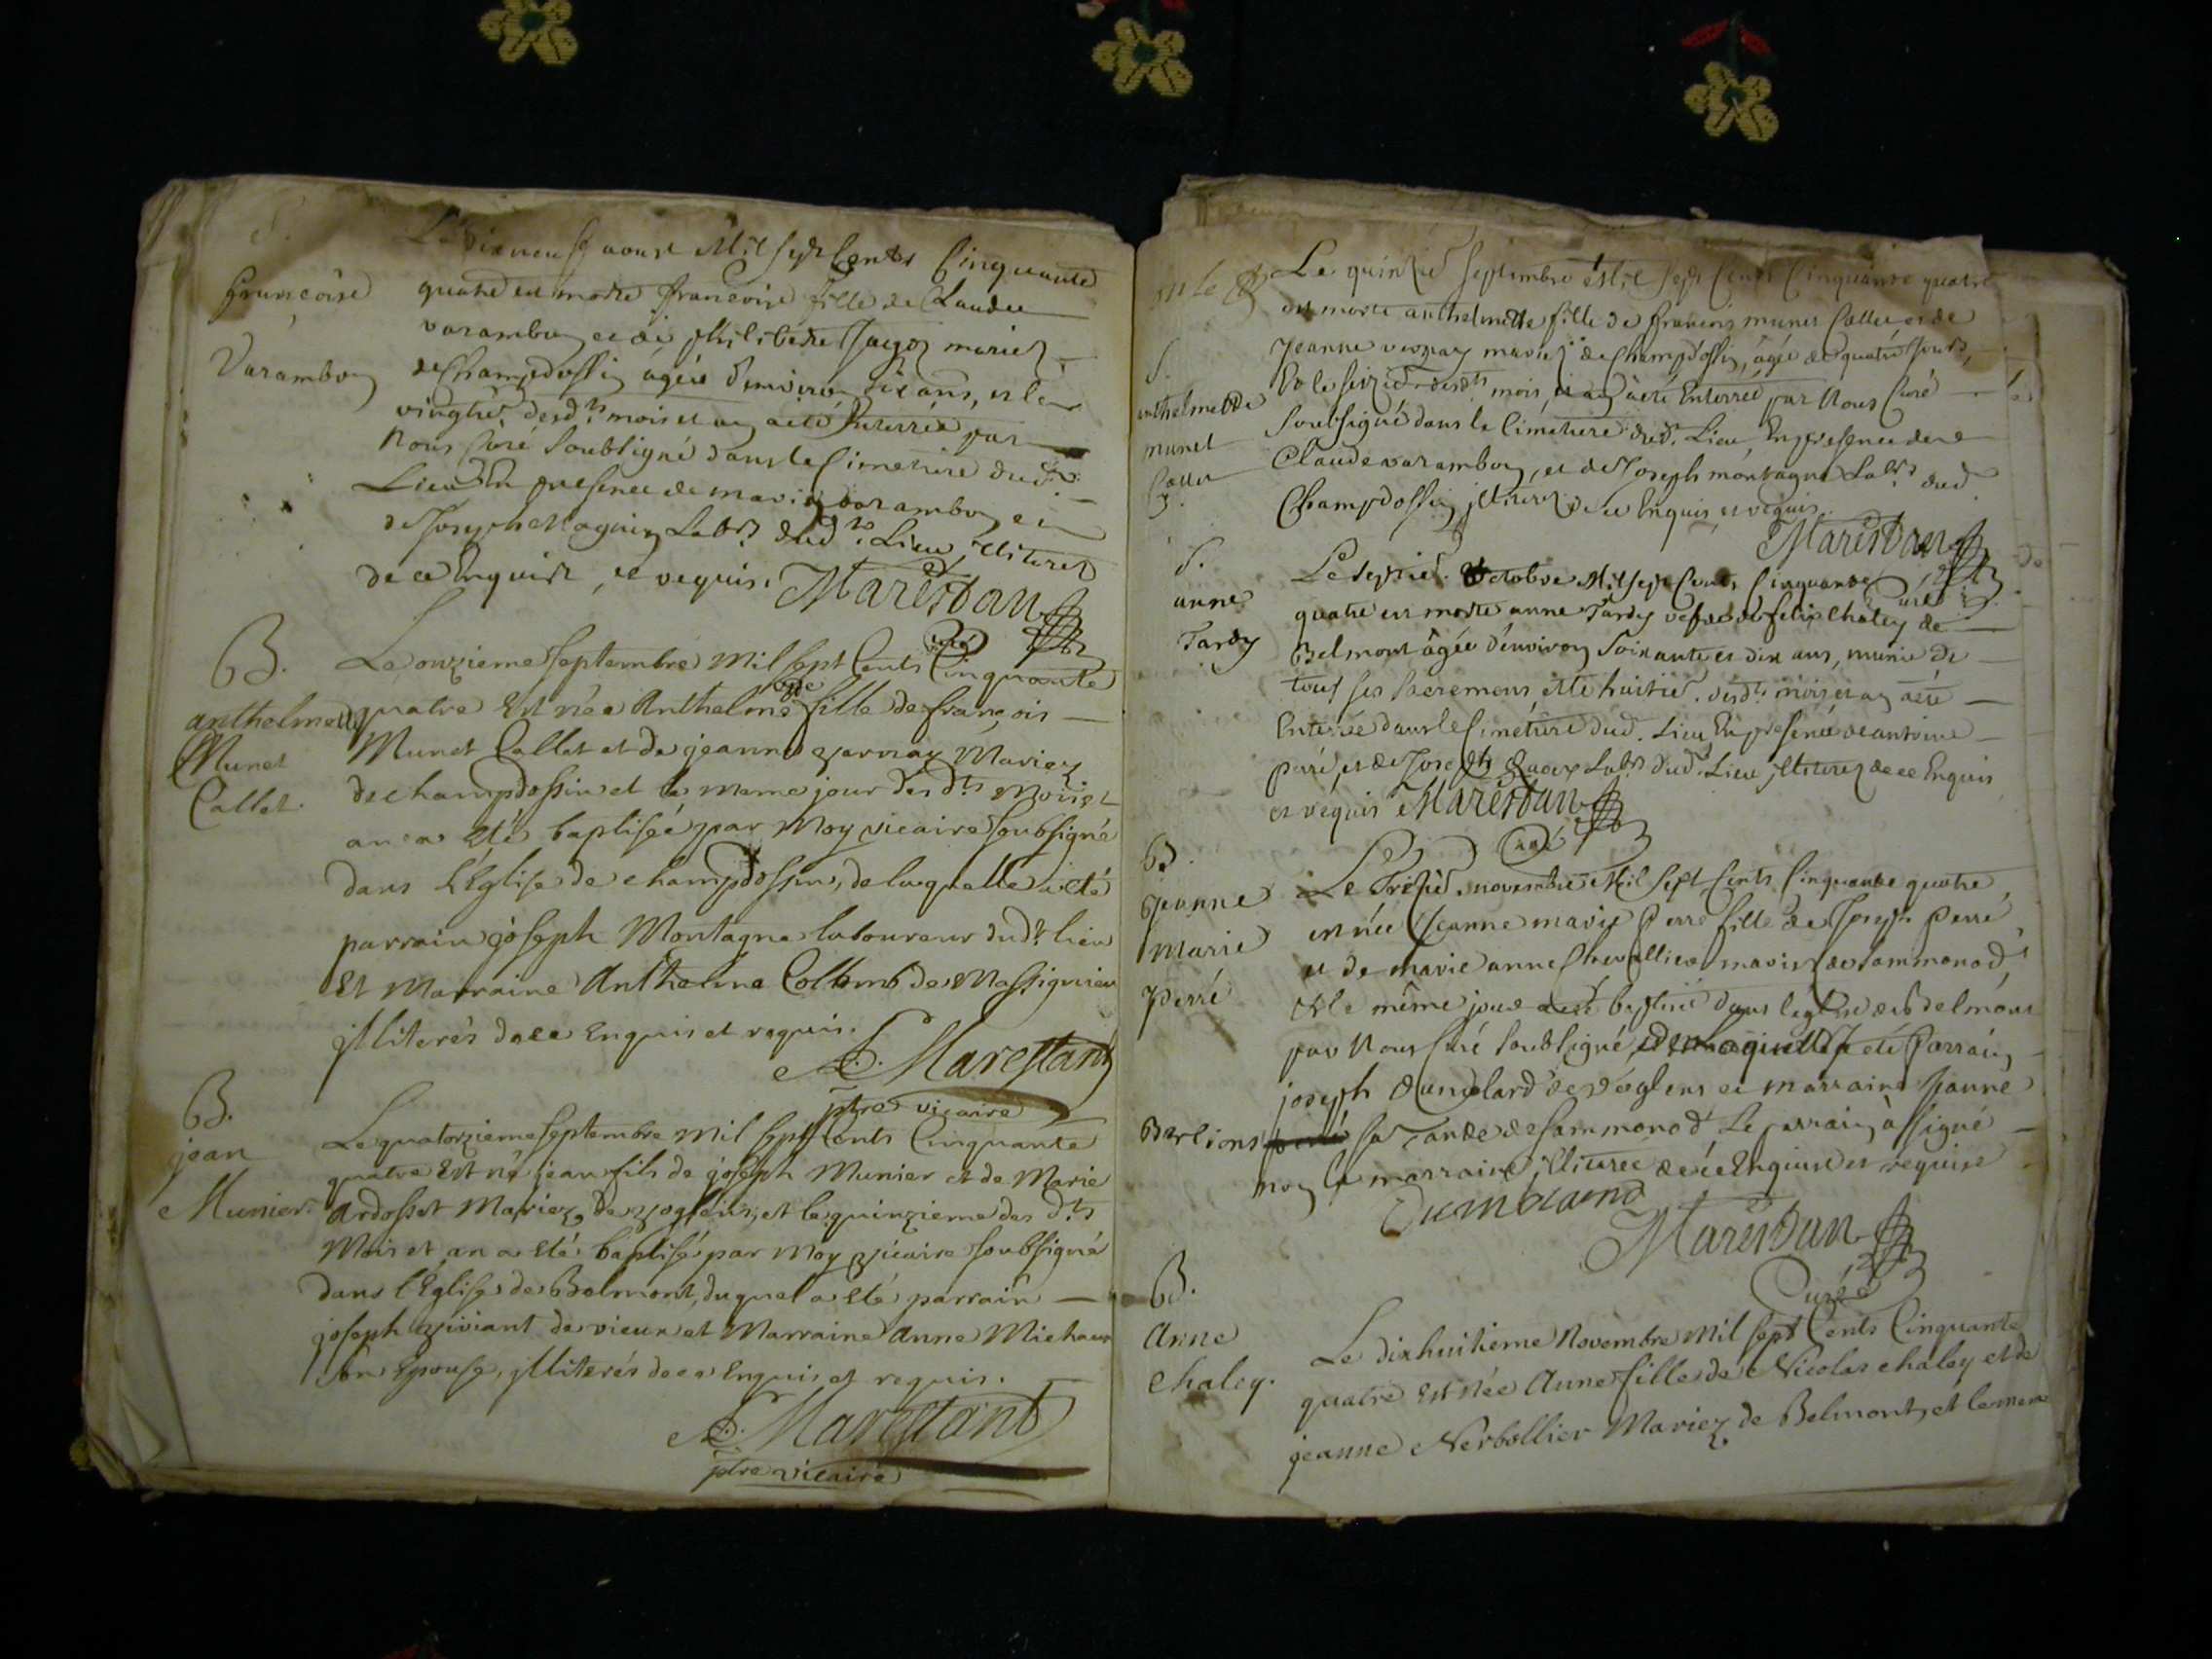 S.
Françoise
Varambon
Le dixneuf aoust Mil sept Cents Cinquante
quatre est morte francoise fille de Claude
varambon et de Philiberte mariez
de Champdossin agée d'environ dix ans, et le
vingtie. desd.ts mois et an a eté Enterrée par
Nous Curé Soubsigné dans le Cimetiere dud.
Lieu En presence de varambon et
de Joseph Labrs. dud. Lieu illiterez
de ce Enquis, et requis. Marestan
Curé
B.
anthelmette
Munet
Callet.
Le onzieme septembre mil sept Cents Cinquante
quatre Est née Anthelme fille de françois
Munet Callet et de jeanne vernay Mariez
de champdossin et le meme jour des d.ts mois et
an a eté baptisée par Moy vicaire soubsigné
dans l'Eglise de champdossin, de laquelle a eté
parrain joseph Montagne laboureur dud.t lieu
Et Marraine Anthelme Collomb de Massignieu
jlliterés de ce Enquis et requis.
Marestant
ptre vicaire
B.
jean
Munier.
Le quatorzieme septembre mil sept Cents Cinquante
quatre Est né jean fils de joseph Munier et de Marie
Ardosset Mariez de voglens, et le quinzieme des d.ts
Mois et an a eté baptisé par Moy vicaire soubsigné
dans l'Eglise de Belmont, duquel a eté parrain
joseph viviant de vieux et Marraine Anne Michaux
son Epouse, jlliterés de ce Enquis et requis.
Marestant
ptre vicaire
S.
anthelmette
munet
Callet
3.
Le quinzie. septembre Mil sept Cents Cinquante quatre
est morte anthelmette fille de francois munet Callet et de
Jeanne vernay mariez de Champdossin, âgée de quatre jours,
Et le seizie. desd.ts mois, et an a eté Enterrée par Nous Curé
Soubsigné dans le Cimetiere dud. Lieu, En presence de
Claude varambon, et de Joseph montagne Labrs. dud.
Champdossin jlliterez de ce Enquis et requis.
Marestan
Curé
S.
anne
Tardy
Le septie. octobre Mil sept Cents Cinquante
quatre est morte anne Tardy vefve de felix Chaley de
Belmont âgée d'environ Soixante et dix ans, munie de
tous ses Sacremens et le huitie. desd.ts mois et an a eté
Enterrée dans le Cimetiere dud. Lieu En presence de antoine
perré, et de Joseph Labrs. dud. Lieu jlliterez de ce Enquis
et requis Marestan
Curé
B.
Jeanne
Marie
perré
Le Trezie. novembre Mil Sept Cents Cinquante quatre
est née Jeanne marie Perré fille de Joseph Perré
et de marie anne Chevallier mariez de sammonod,
Et le même jour a eté baptisée dans leglise de belmont
par Nous Curé Soubsigné de laquelle a eté Parrain
joseph de voglens et marraine Jeanne
Berlions sa Tante de sammonod. Le parrain à signé
non la marraine jlliterée de ce Enquise et requise
Marestan
Curé
B.
Anne
Chaley.
Le dixhuitieme Novembre mil sept Cents Cinquante
quatre Est née Anne fille de Nicolas chaley et de
jeanne Nerbollier Mariez de Belmont, et le meme